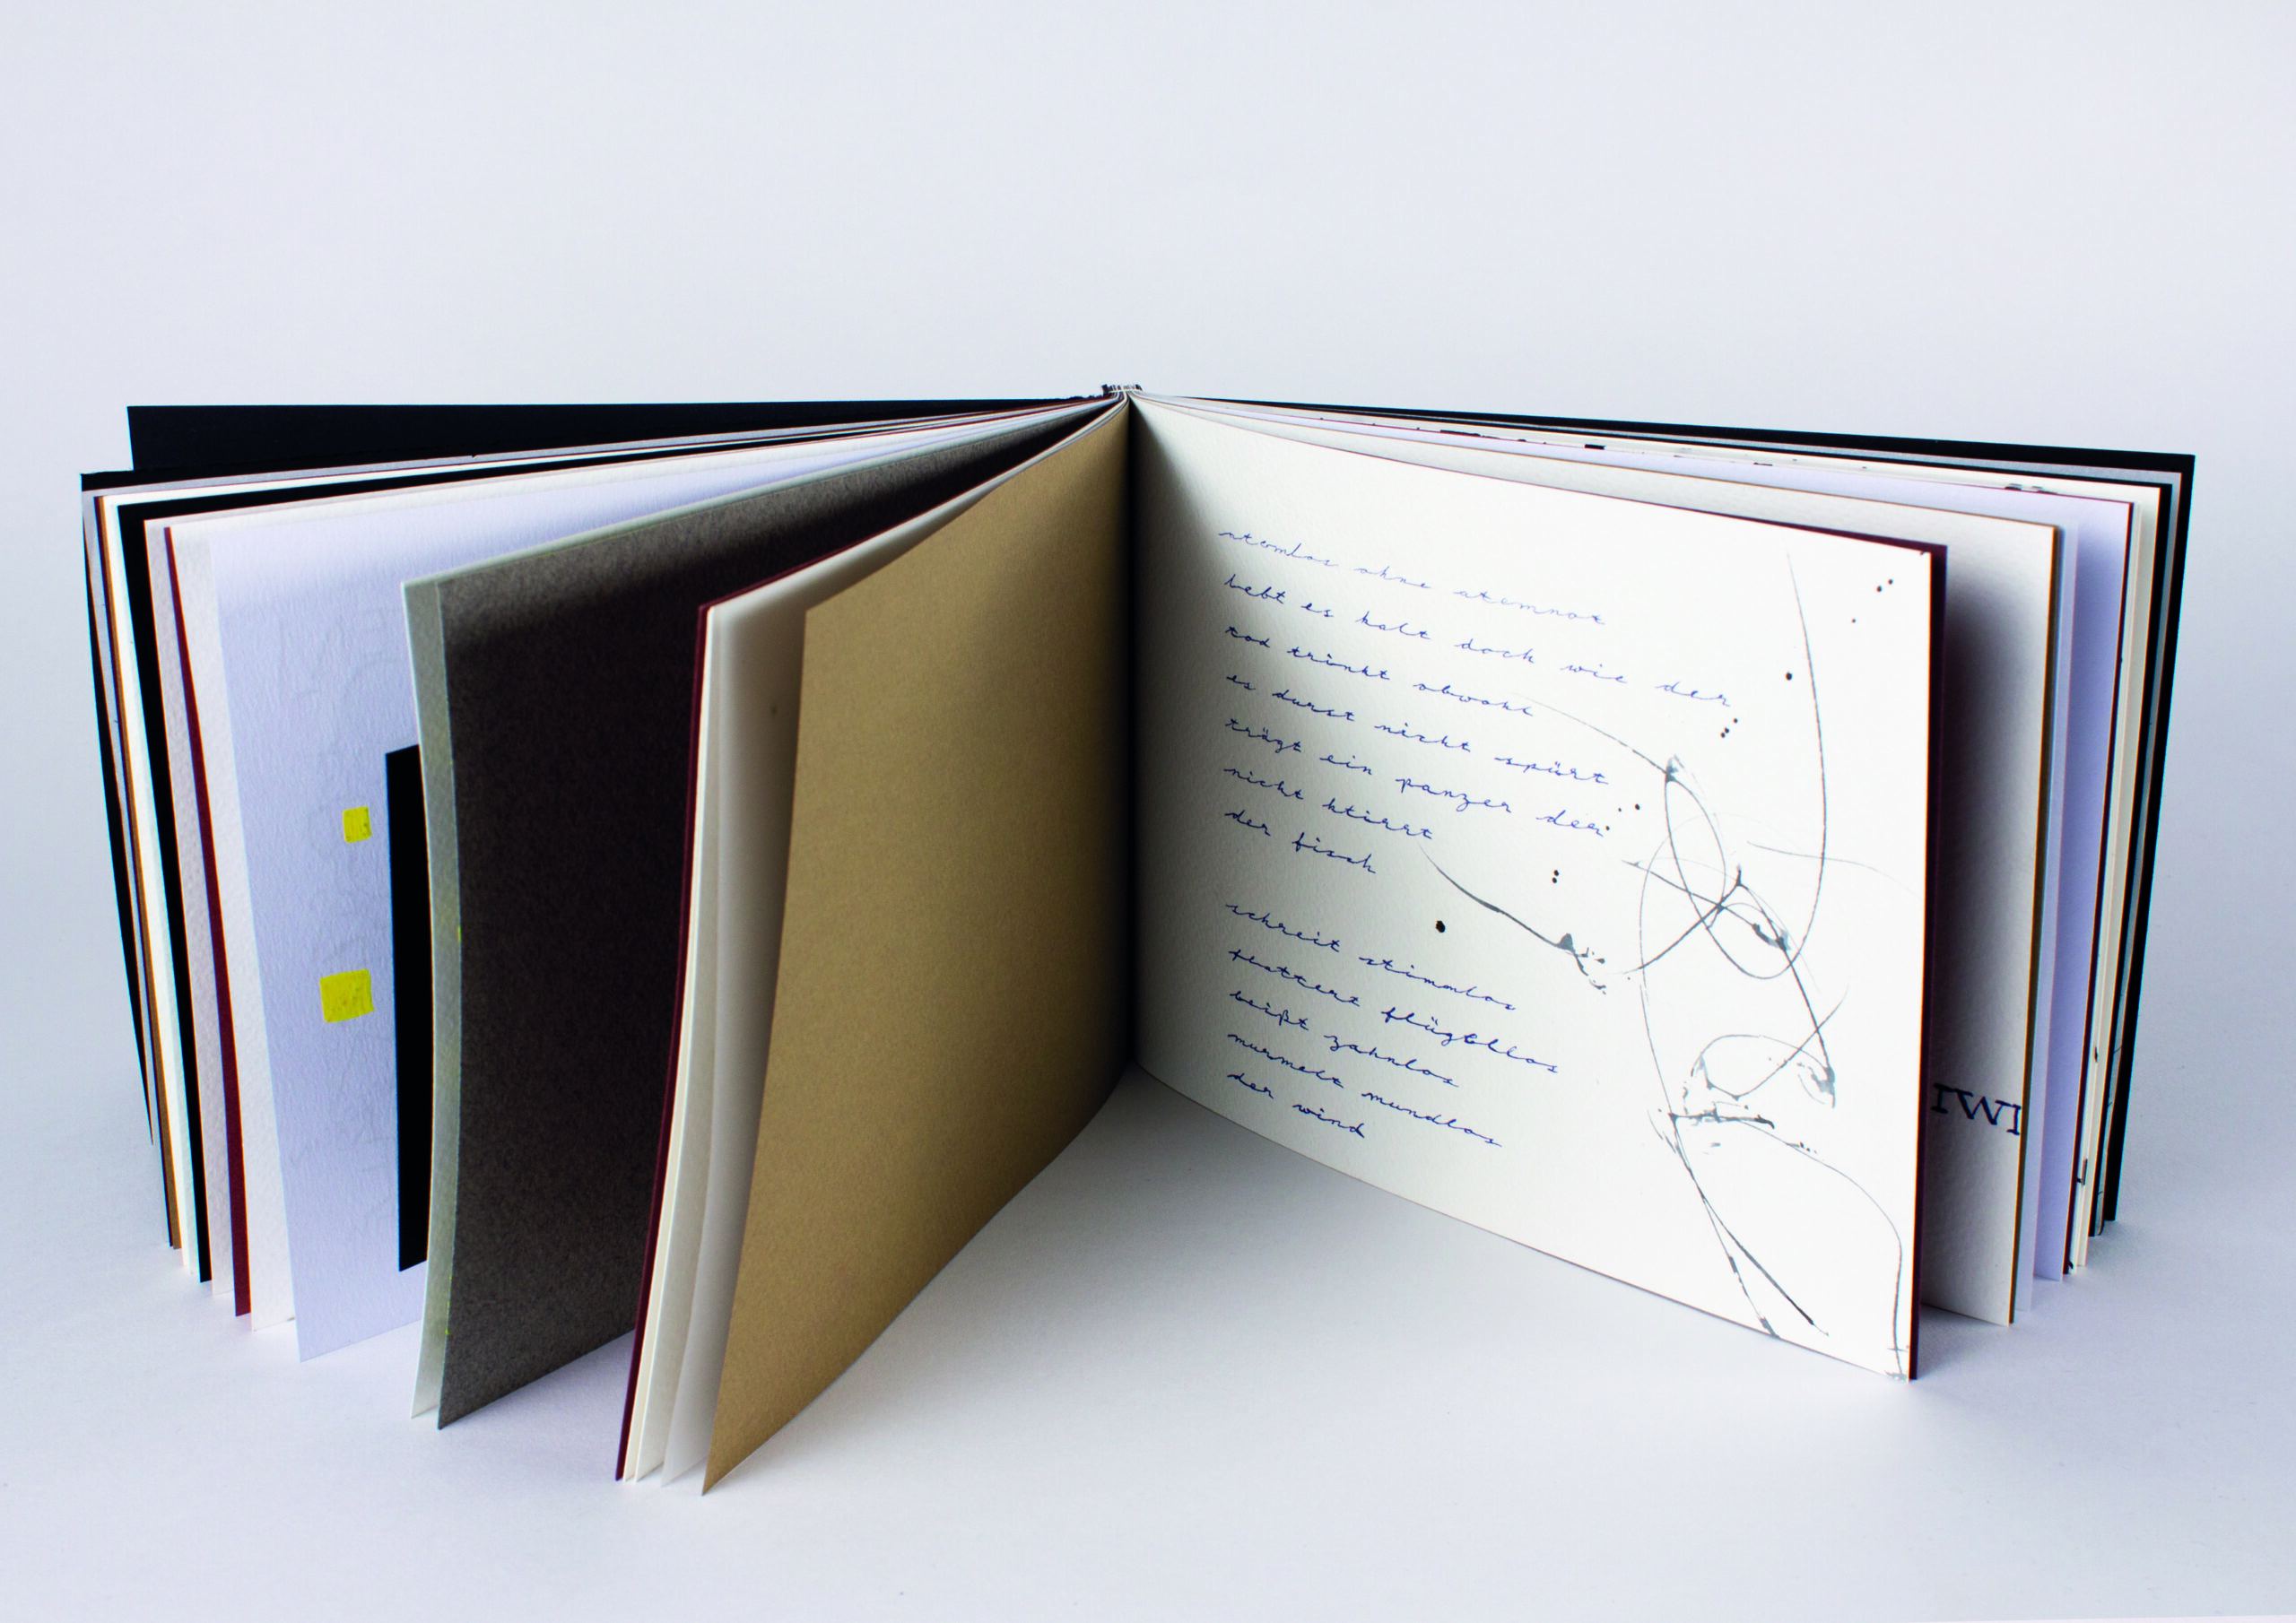 atemlos ohne atemnot
lebt es kalt doch wie der
tod trinkt obwohl
es durst nicht spürt
trägt ein panzer der
nicht klirrt
der fisch
schreit stimmlos
flattert flügellos
beißt zahnlos
murmelt mundlos
der wind
IWI